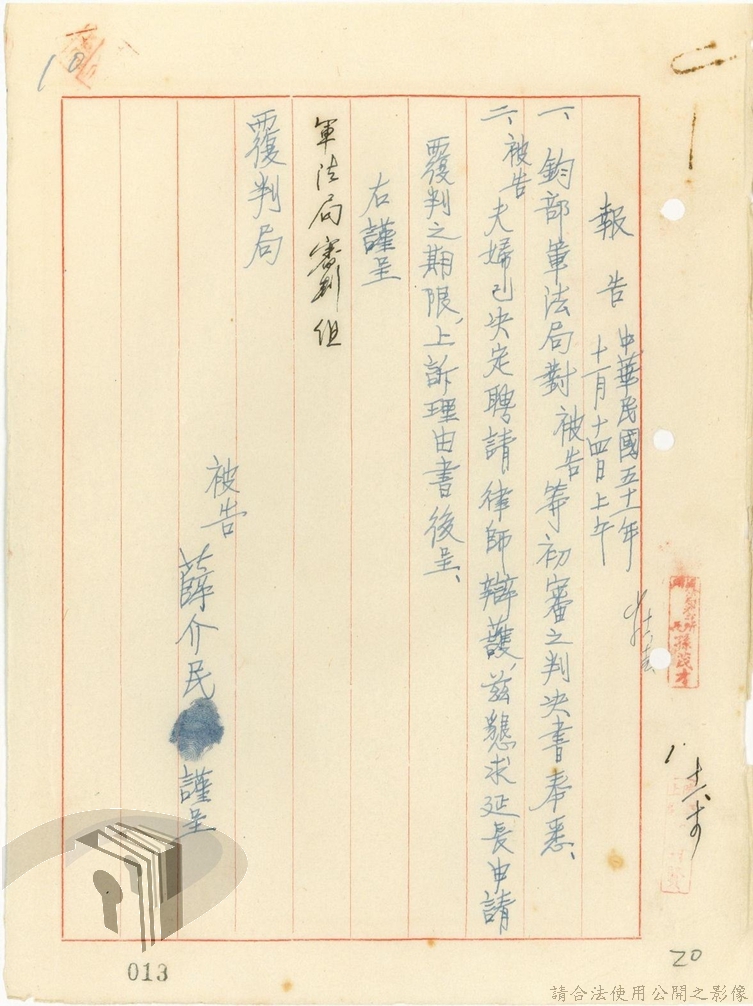 報告 中華民國五十一年
十一月十四日上午
一、鈞部軍法局對被告等初審之判決書奉悉、
二、被告夫婦已決定聘請律師辯護，茲懇求延長申請
覆判之期限，上訴理由書後呈、
右謹呈
軍法局審判組
覆判局
被告 薛介民 謹呈
孫茂才
013
20
請合法使用公開之影像